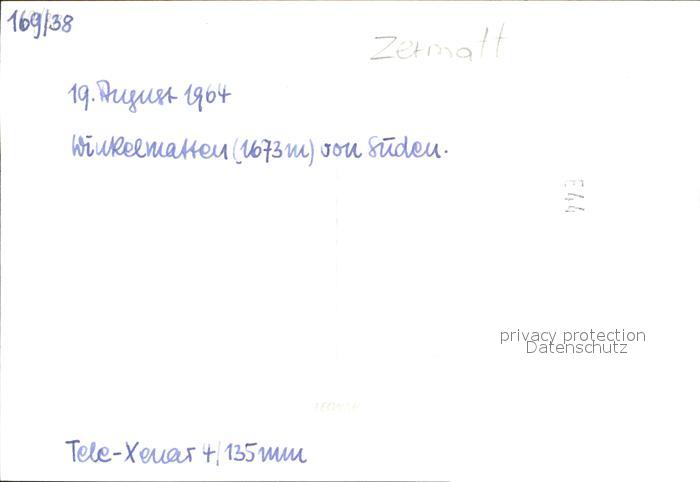 169/38
Zermatt
19. August 1964
Winkelmatten (1673m) von Süden.
E44
privacy protection
Datenschutz
Tele-Xenar 4/135mm